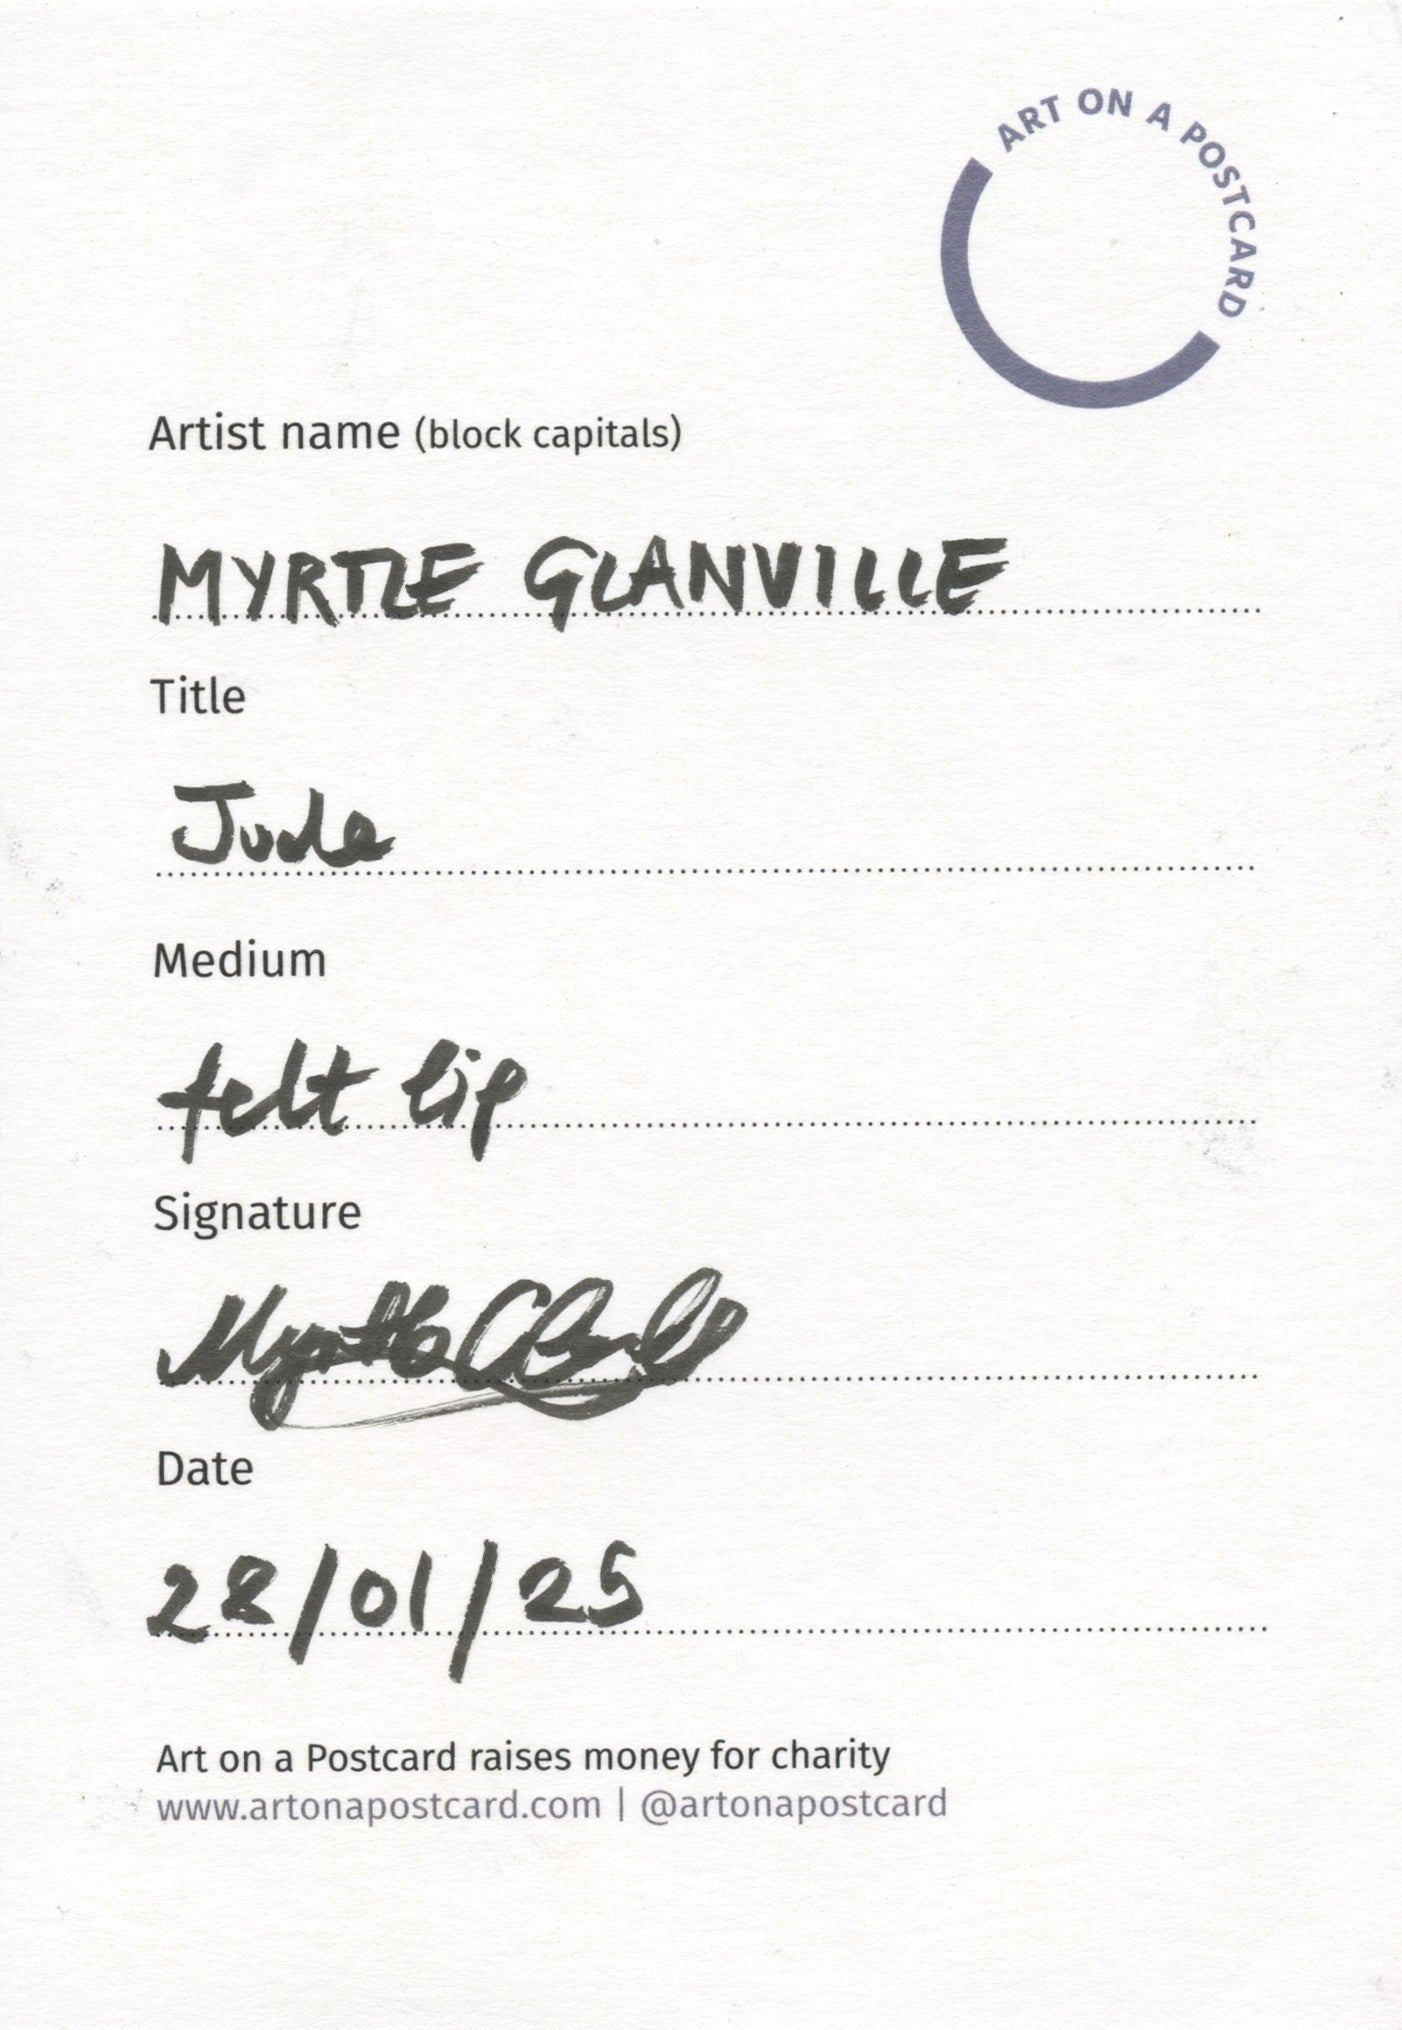 ART ON A POSTCARD
Artist name (block capitals)
MYRTLE GLANVILLE
Title
Jude
Medium
felt tip
Signature
Myrtle
Date
28/01/25
Art on a Postcard raises money for charity
www.artonapostcard.com | @artonapostcard